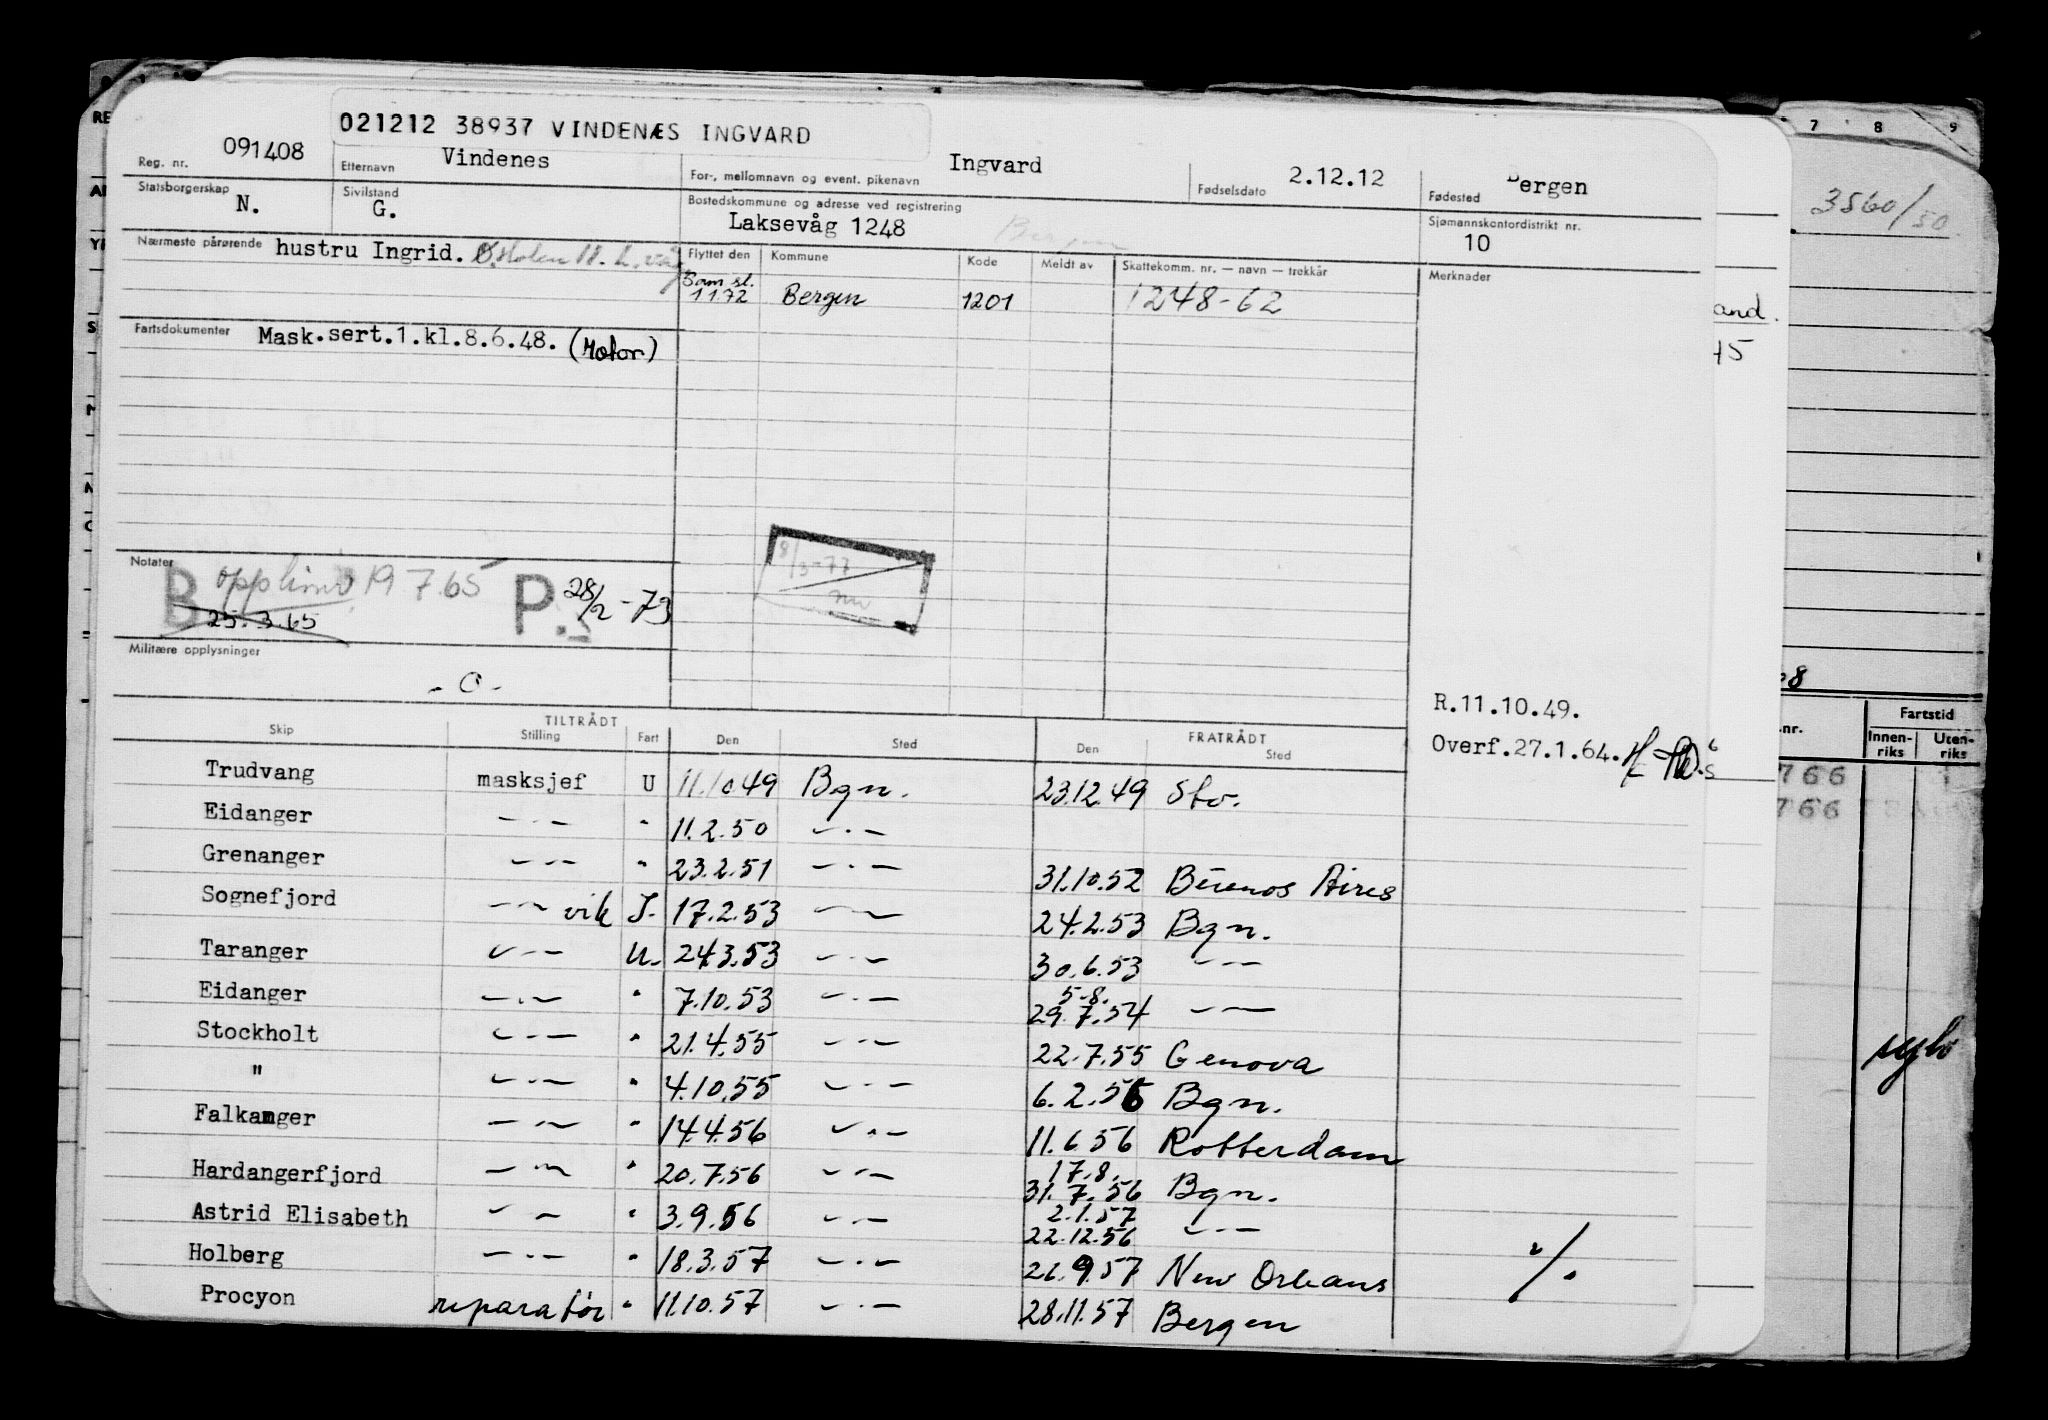 021212 38937 VINDENÆS INGVARD
Reg. nr. 091408 Etternavn Vindenes For-, mellomnavn og event. pikenavn Ingvard Fødselsdato 2.12.12 Fødested Bergen
Statsborgerskap N. Sivilstand G. Bostedskommune og adresse ved registrering Laksevåg 1248 Bergen Sjømannskontordistrikt nr. 10
Nærmeste pårørende hustru Ingrid. Flyttet den Kommune Kode Meldt av Skattekomm. nr. — navn — trekkår Merknader
1172 Bergen 1201 1248-62
Fartsdokumenter Mask.sert.1.kl.8.6.48. (Motor)
Notater
B 19 7.65 P. 28/2-73
25.3.65
8/3-77
Militære opplysninger
- 0 -
R.11.10.49.
Overf.27.1.64.
TILTRÅDT FRATRÅDT
Skip Stilling Fart Den Sted Den Sted
Trudvang masksjef U 11.10.49 Bgn. 23.12.49 Stv.
Eidanger —"— " 11.2.50 —"—
Grenanger —"— " 23.2.51 —"— 31.10.52 Buenos Aires
Sognefjord —"— vik I. 17.2.53 —"— 24.2.53 Bgn.
Taranger —"— U. 24.3.53 —"— 30.6.53 —"—
Eidanger —"— " 7.10.53 —"— 5.8. 29.7.54 —"—
Stockholt —"— " 21.4.55 —"— 22.7.55 Genova
" —"— " 4.10.55 —"— 6.2.56 Bgn.
Falkanger —"— " 14.4.56 —"— 11.6.56 Rotterdam
Hardangerfjord —"— " 20.7.56 —"— 17.8. 31.7.56 Bgn.
Astrid Elisabeth —"— " 3.9.56 —"— 2.1.57 22.12.56 —"—
Holberg —"— " 18.3.57 —"— 21.9.57 New Orleans
Procyon reparatør " 11.10.57 —"— 28.11.57 Bergen
7 8 9
3560/50
and.
45
8
nr. Fartstid
Innenriks Utenriks
766
766